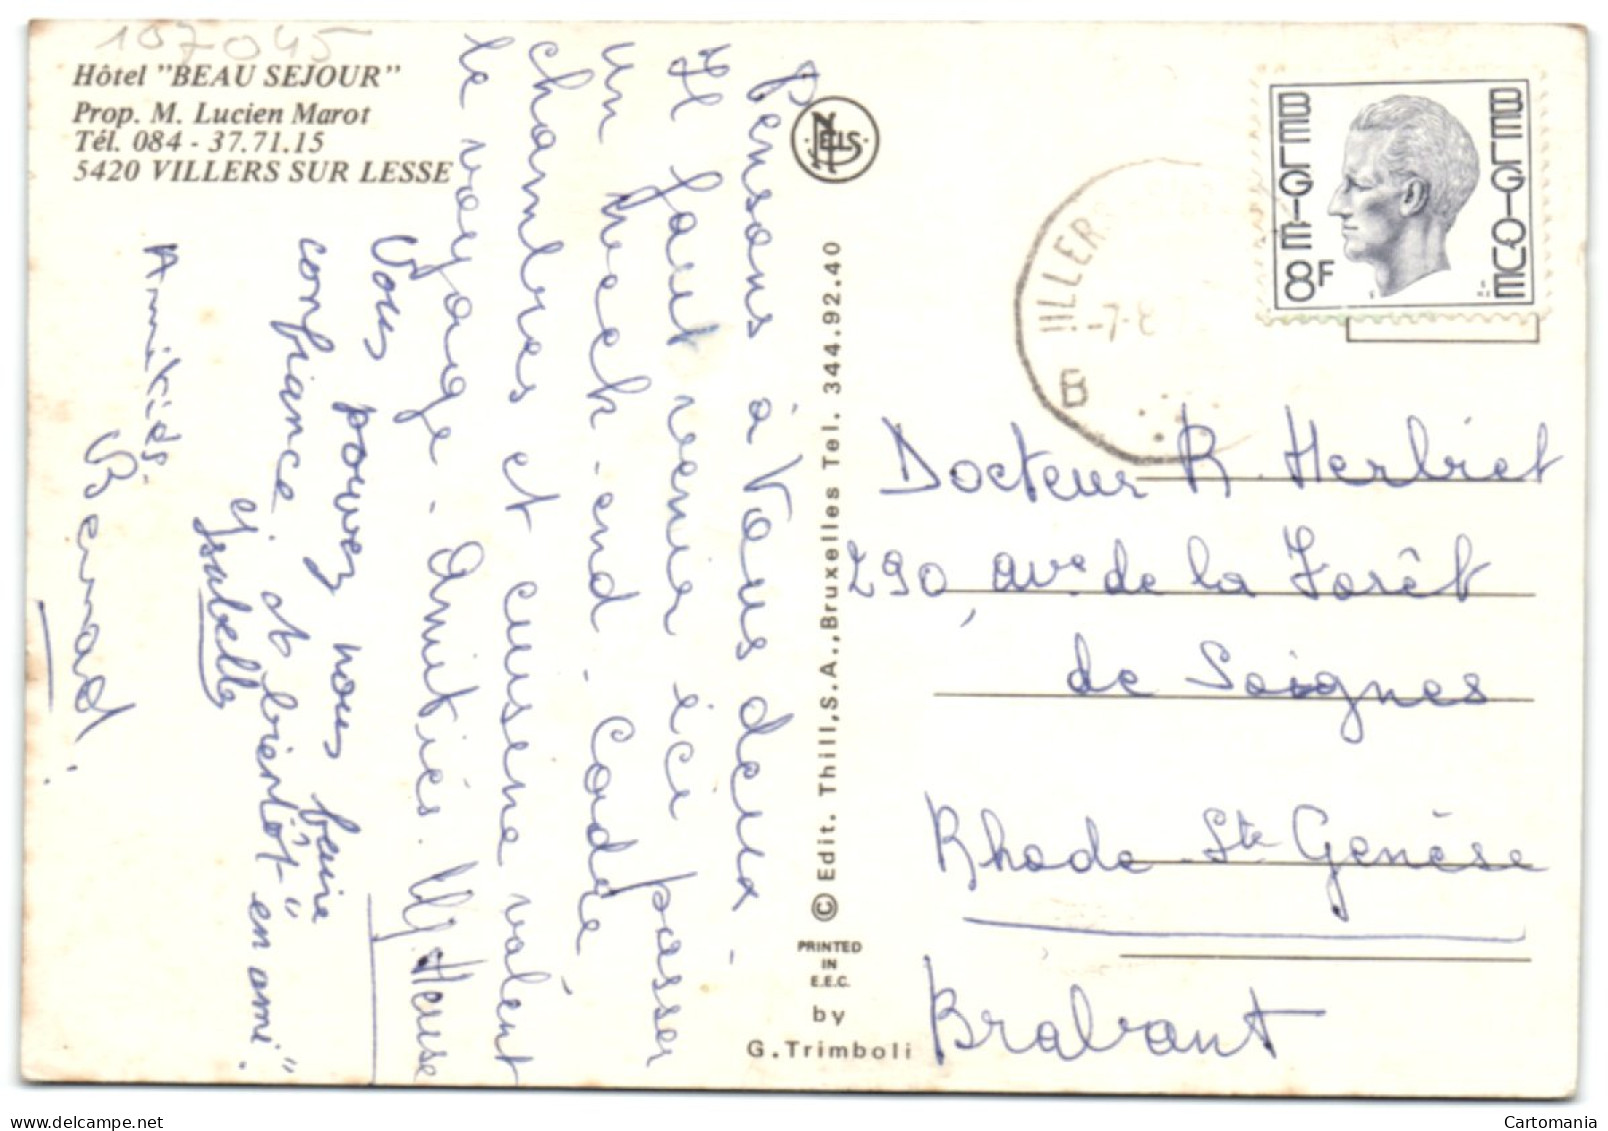 107045
Hôtel "BEAU SEJOUR"
Prop. M. Lucien Marot
Tél. 084 - 37.71.15
5420 VILLERS SUR LESSE
Pensons à Vous deux.
Il faut venir ici passer
un week-end. Cadre
chambres et cuisine valent
le voyage. Amitiés. Heuse
Vous pouvez nous faire
confiance et bientôt "en ami".
Ysabelle
Amitiés.
Bernard.
NELS
© Edit. Thill, S.A., Bruxelles Tel. 344.92.40
PRINTED
IN
E.E.C.
by
G. Trimboli
BELGIË
BELGIQUE
8F
VILLERS
-7-8
B
Docteur R. Herbiet
290, ave de la Forêt
de Soignes
Rhode Ste Genèse
Brabant
Cartomania